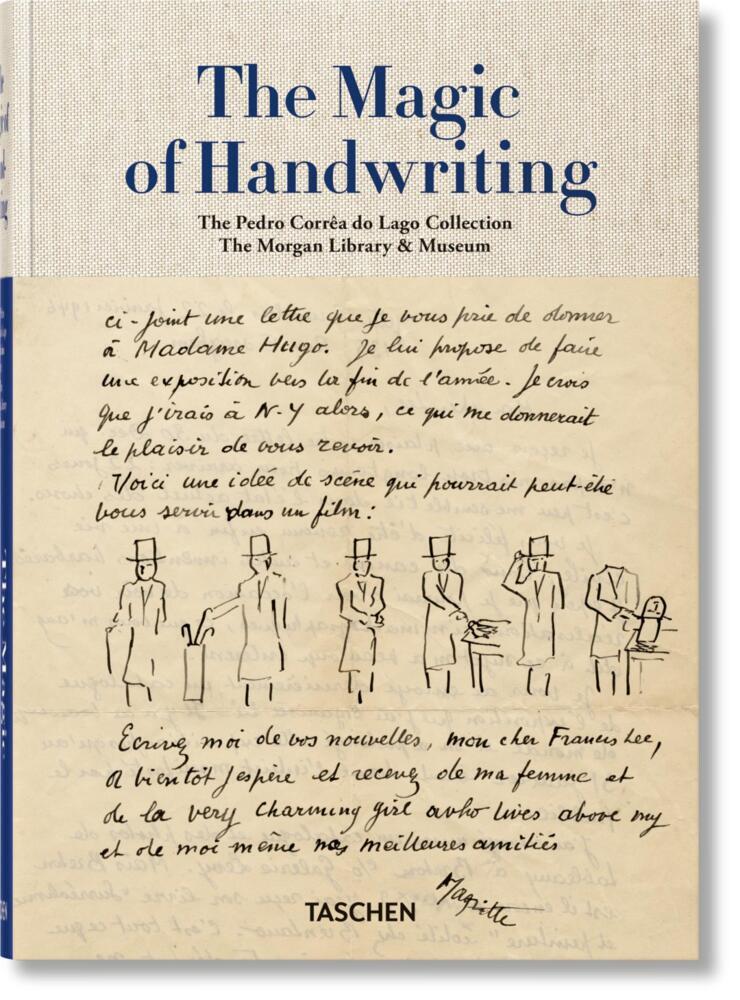 The Magic
of Handwriting
The Pedro Corrêa do Lago Collection
The Morgan Library & Museum
ci-joint une lettre que je vous prie de donner
à Madame Hugo. Je lui propose de faire
une exposition vers la fin de l'année. Je crois
que j'irais à N-Y alors, ce qui me donnerait
le plaisir de vous revoir.
Voici une idée de scène qui pourrait peut-être
vous servir dans un film :
Ecrivez moi de vos nouvelles, mon cher Francis Lee,
à bientôt j'espère et recevez de ma femme et
de la very charming girl who lives above my
et de moi même nos meilleures amitiés
Magritte
TASCHEN